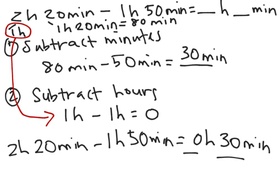 2h 20min - 1h 50min = _ h _ min
1h 1h 20min = 80min
① Subtract minutes
80min - 50min = 30min
② Subtract hours
1h - 1h = 0
2h 20min - 1h 50min = 0h 30min